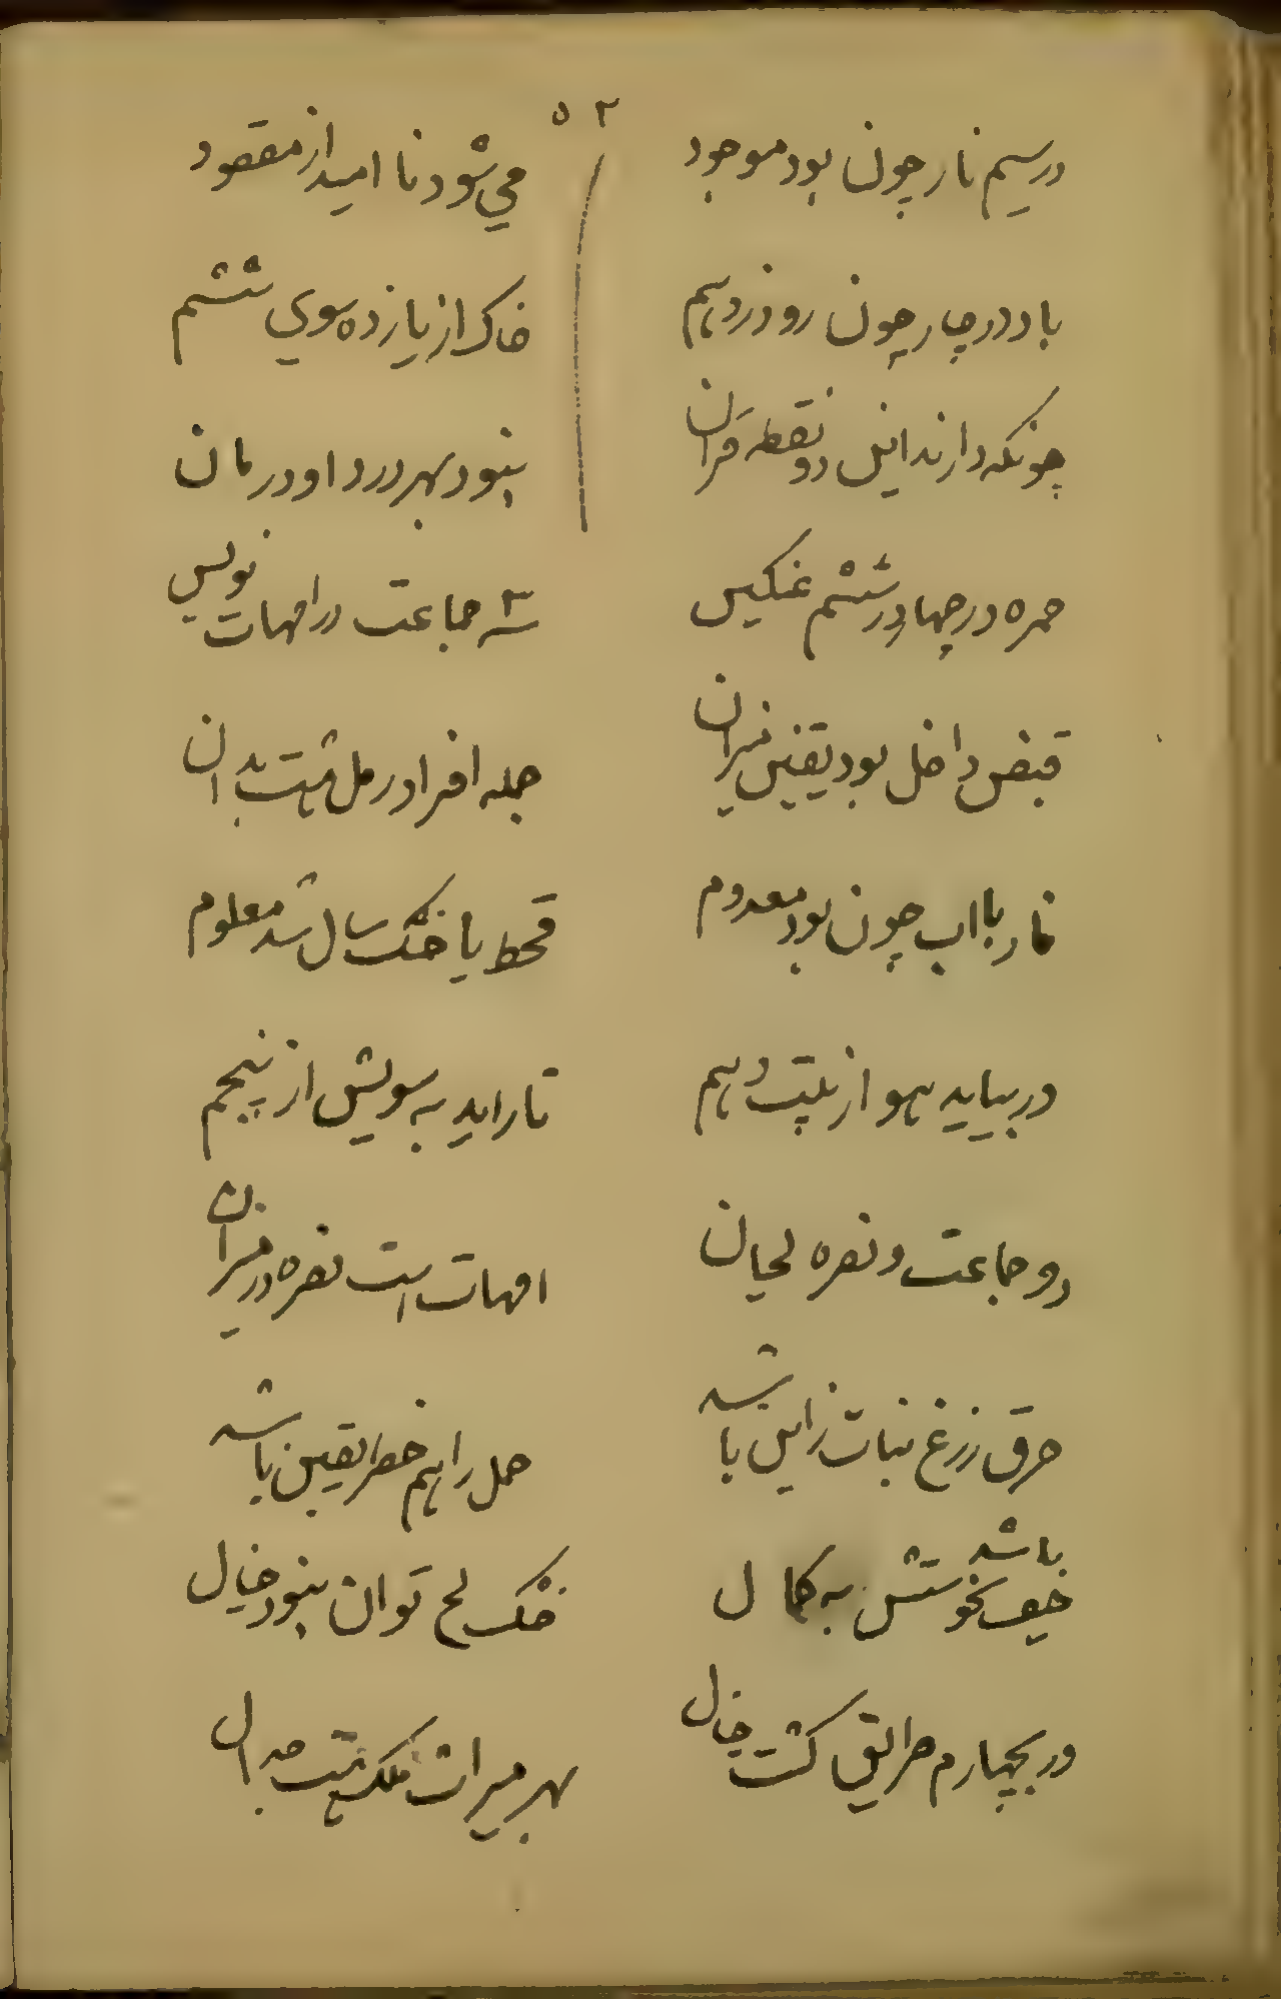 ۵۲
در سیم نار چون بود موجود می شود نا امید از مقصود
باد در چار چون رود ز دهم خاک از یازده سوی ششم
چونکه دارند این دو نقطه قران نبود بهر درد او درمان
حمره در چهار در ششم غمکین سه جماعت در امهات نویس
قبض داخل بود یقین میزان جمله افراد رمل هشت بدان
نار با اب چون بود معدوم قحط یا خشک سال شد معلوم
در بیاید هوا ز بیت دهم نار اید به سویش از پنجم
دو جماعت و نصره لحیان امهات است نصره در میزان
حرق زرغ نبات زاین باشد حمل را هم خطر یقین باشد
باشد
خیف نخوستش به کمال خشک لح توان نبود خیال
در بچهارم طریق کشت خیال بهر میراث ملک هست جدال